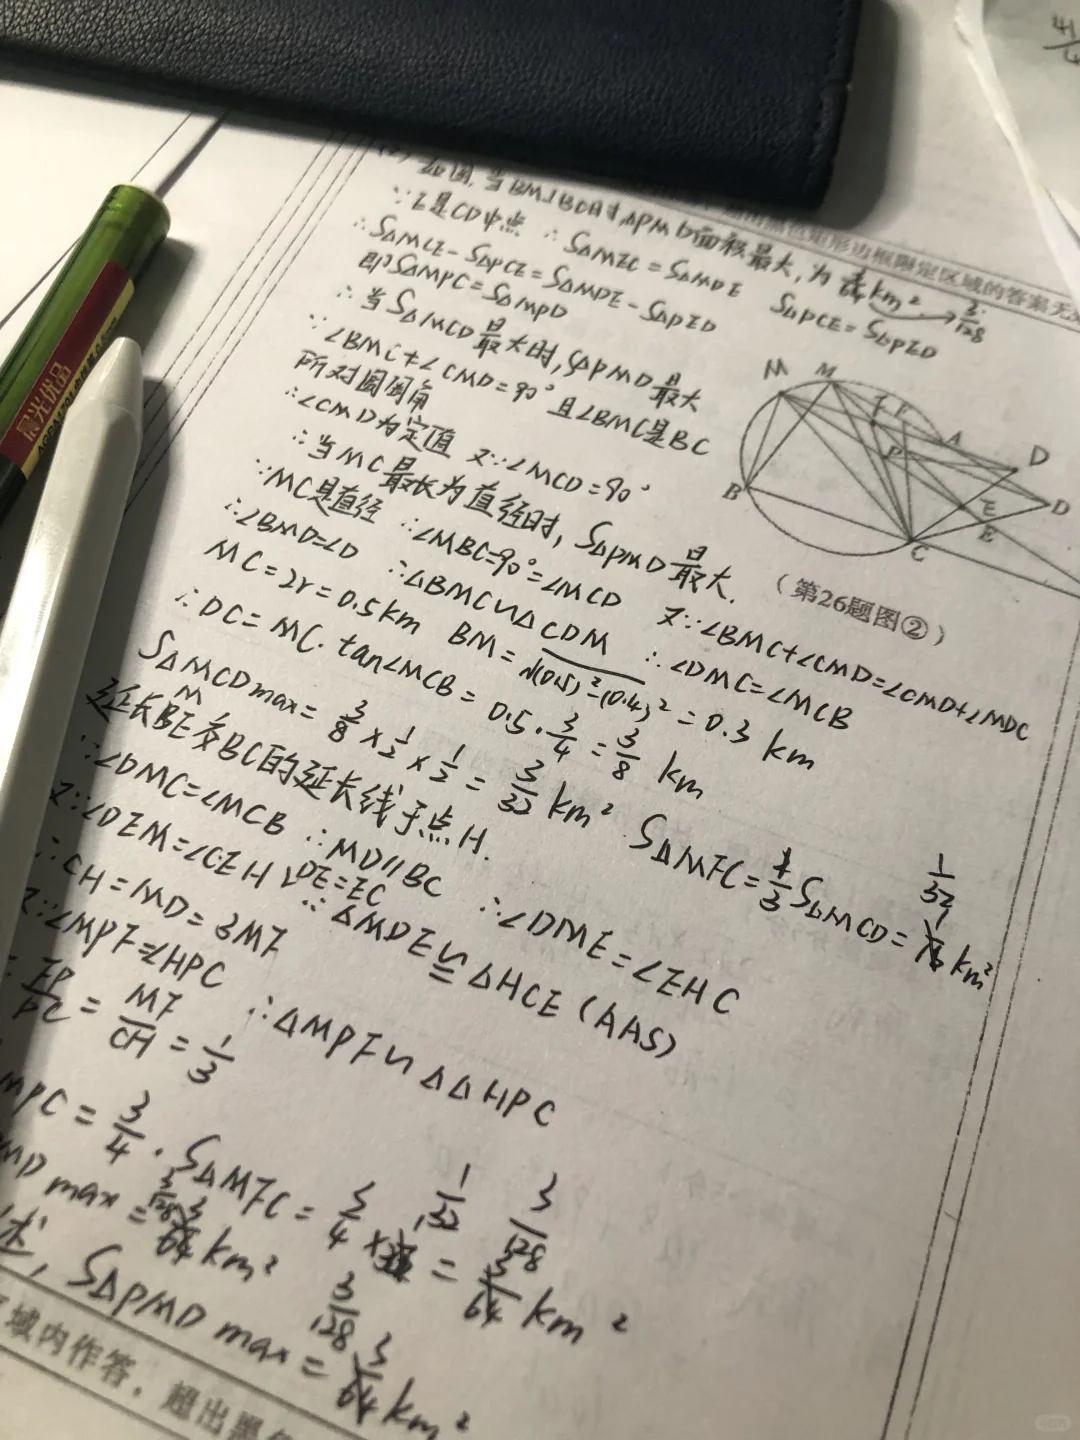 如图,当BM⊥BC时,△PMD面积最大,为 km² 3/128
∵E是CD中点 ∴S△MEC=S△MDE S△PCE=S△PED
∴S△MCE-S△PCE=S△MDE-S△PED
即S△MPC=S△MPD
∴当S△MCD最大时,S△PMD最大
∵∠BMC+∠CMD=90° 且∠BMC是BC
所对圆周角
∴∠CMD为定值 又∵∠MCD=90°
∴当MC最长为直径时,S△PMD最大.
∵MC是直径 ∴∠MBC=90°=∠MCD 又∵∠BMC+∠CMD=∠CMD+∠MDC
∴∠BMD=∠D ∴△BMC∽△CDM ∴∠DMC=∠MCB
MC=2r=0.5km BM=√(0.5)²-(0.4)²=0.3 km
∴DC=MC·tan∠MCB=0.5·3/4=3/8 km
S△MCDmax=3/8×1/2×1/2=3/32 km² S△MFC=1/3S△MCD=1/32 km²
延长ME交BC的延长线于点H.
∵∠DMC=∠MCB ∴MD∥BC ∴∠DME=∠EHC
又∵∠DEM=∠CEH DE=EC ∴△MDE≌△HCE(AAS)
∴CH=MD=3MF
又∵∠MPF=∠HPC ∴△MPF∽△△HPC
FP/PC=MF/CH=1/3
MPC=3/4·S△MFC=3/4×1/32=3/128 km²
MD max=3/128 km²
述,S△PMD max=3/128 km²
M M F F A D P B E D E C
(第26题图②)
超出黑色矩形边框限定区域的答案无
区域内作答,超出黑
晨光优品
AGPA